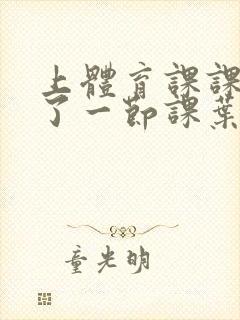 上體育課課
了一節課葉
童光明